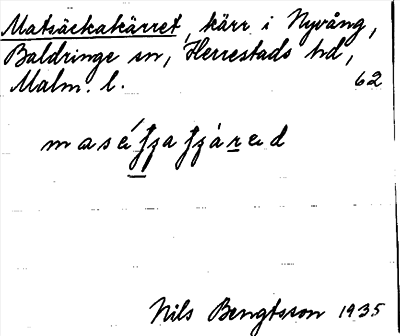 Matsäckakärret, kärr i Nyvång,
Baldringe sn, Herrestads hd,
Malm. l. 62
Nils Bengtsson 1935